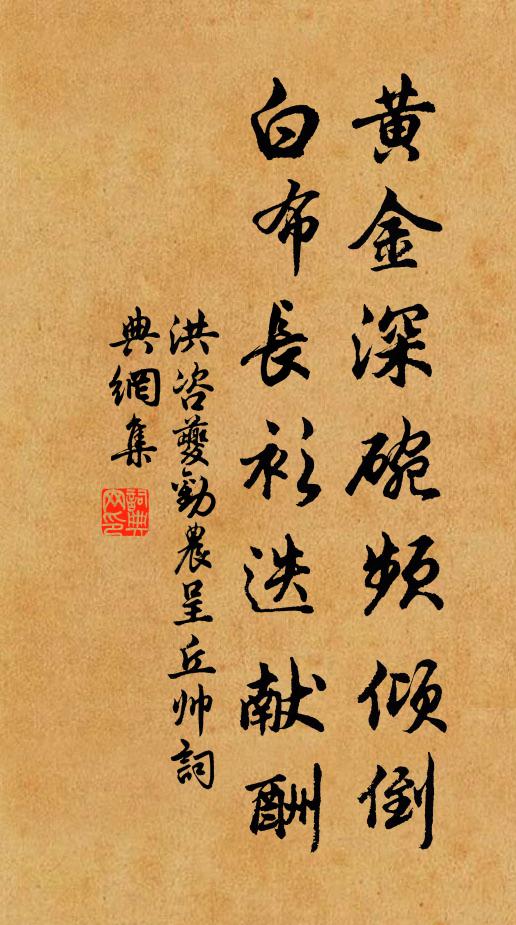 黄金深碗頻傾倒
白布長衫迭献酬
洪咨夔勸農呈丘帅詞
典網集
詞典網印